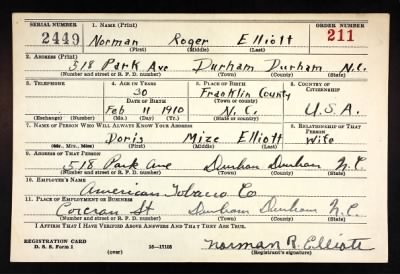 SERIAL NUMBER 1. NAME (Print) ORDER NUMBER
2449 Norman Roger Elliott 211
(First) (Middle) (Last)
2. ADDRESS (Print)
518 Park Ave Durham Durham N.C.
(Number and street or R. F. D. number) (Town) (County) (State)
3. TELEPHONE 4. AGE IN YEARS 5. PLACE OF BIRTH 6. COUNTRY OF CITIZENSHIP
30 Franklin County
DATE OF BIRTH (Town or county)
Feb 11 1910 N.C. U.S.A.
(Exchange) (Number) (Mo.) (Day) (Yr.) (State or country)
7. NAME OF PERSON WHO WILL ALWAYS KNOW YOUR ADDRESS 8. RELATIONSHIP OF THAT PERSON
Doris Mize Elliott Wife
(Mr., Mrs., Miss) (First) (Middle) (Last)
9. ADDRESS OF THAT PERSON
518 Park Ave Durham Durham N.C.
(Number and street or R. F. D. number) (Town) (County) (State)
10. EMPLOYER'S NAME
American Tobacco Co
11. PLACE OF EMPLOYMENT OR BUSINESS
Corcran St Durham Durham N.C.
(Number and street or R. F. D. number) (Town) (County) (State)
I AFFIRM THAT I HAVE VERIFIED ABOVE ANSWERS AND THAT THEY ARE TRUE.
REGISTRATION CARD
D. S. S. Form 1 (over) 16—17105 Norman R. Elliott
(Registrant's signature)